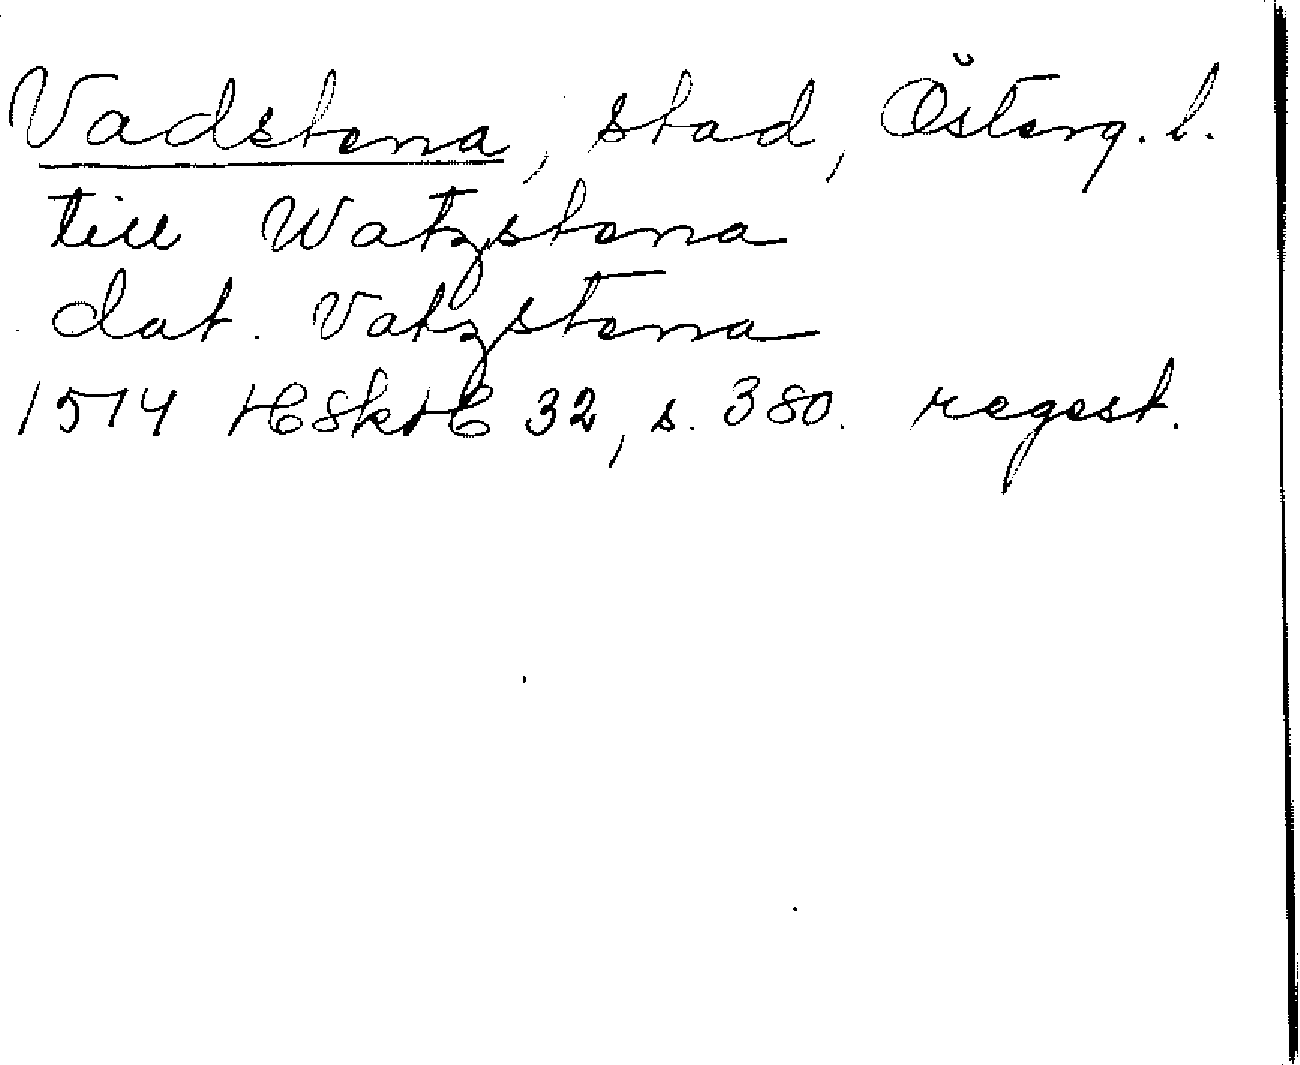 Vadstena, stad, Österg. l.
till Watzstena
dat. Vatzstena
1514 HSkH 32, s. 380. regest.